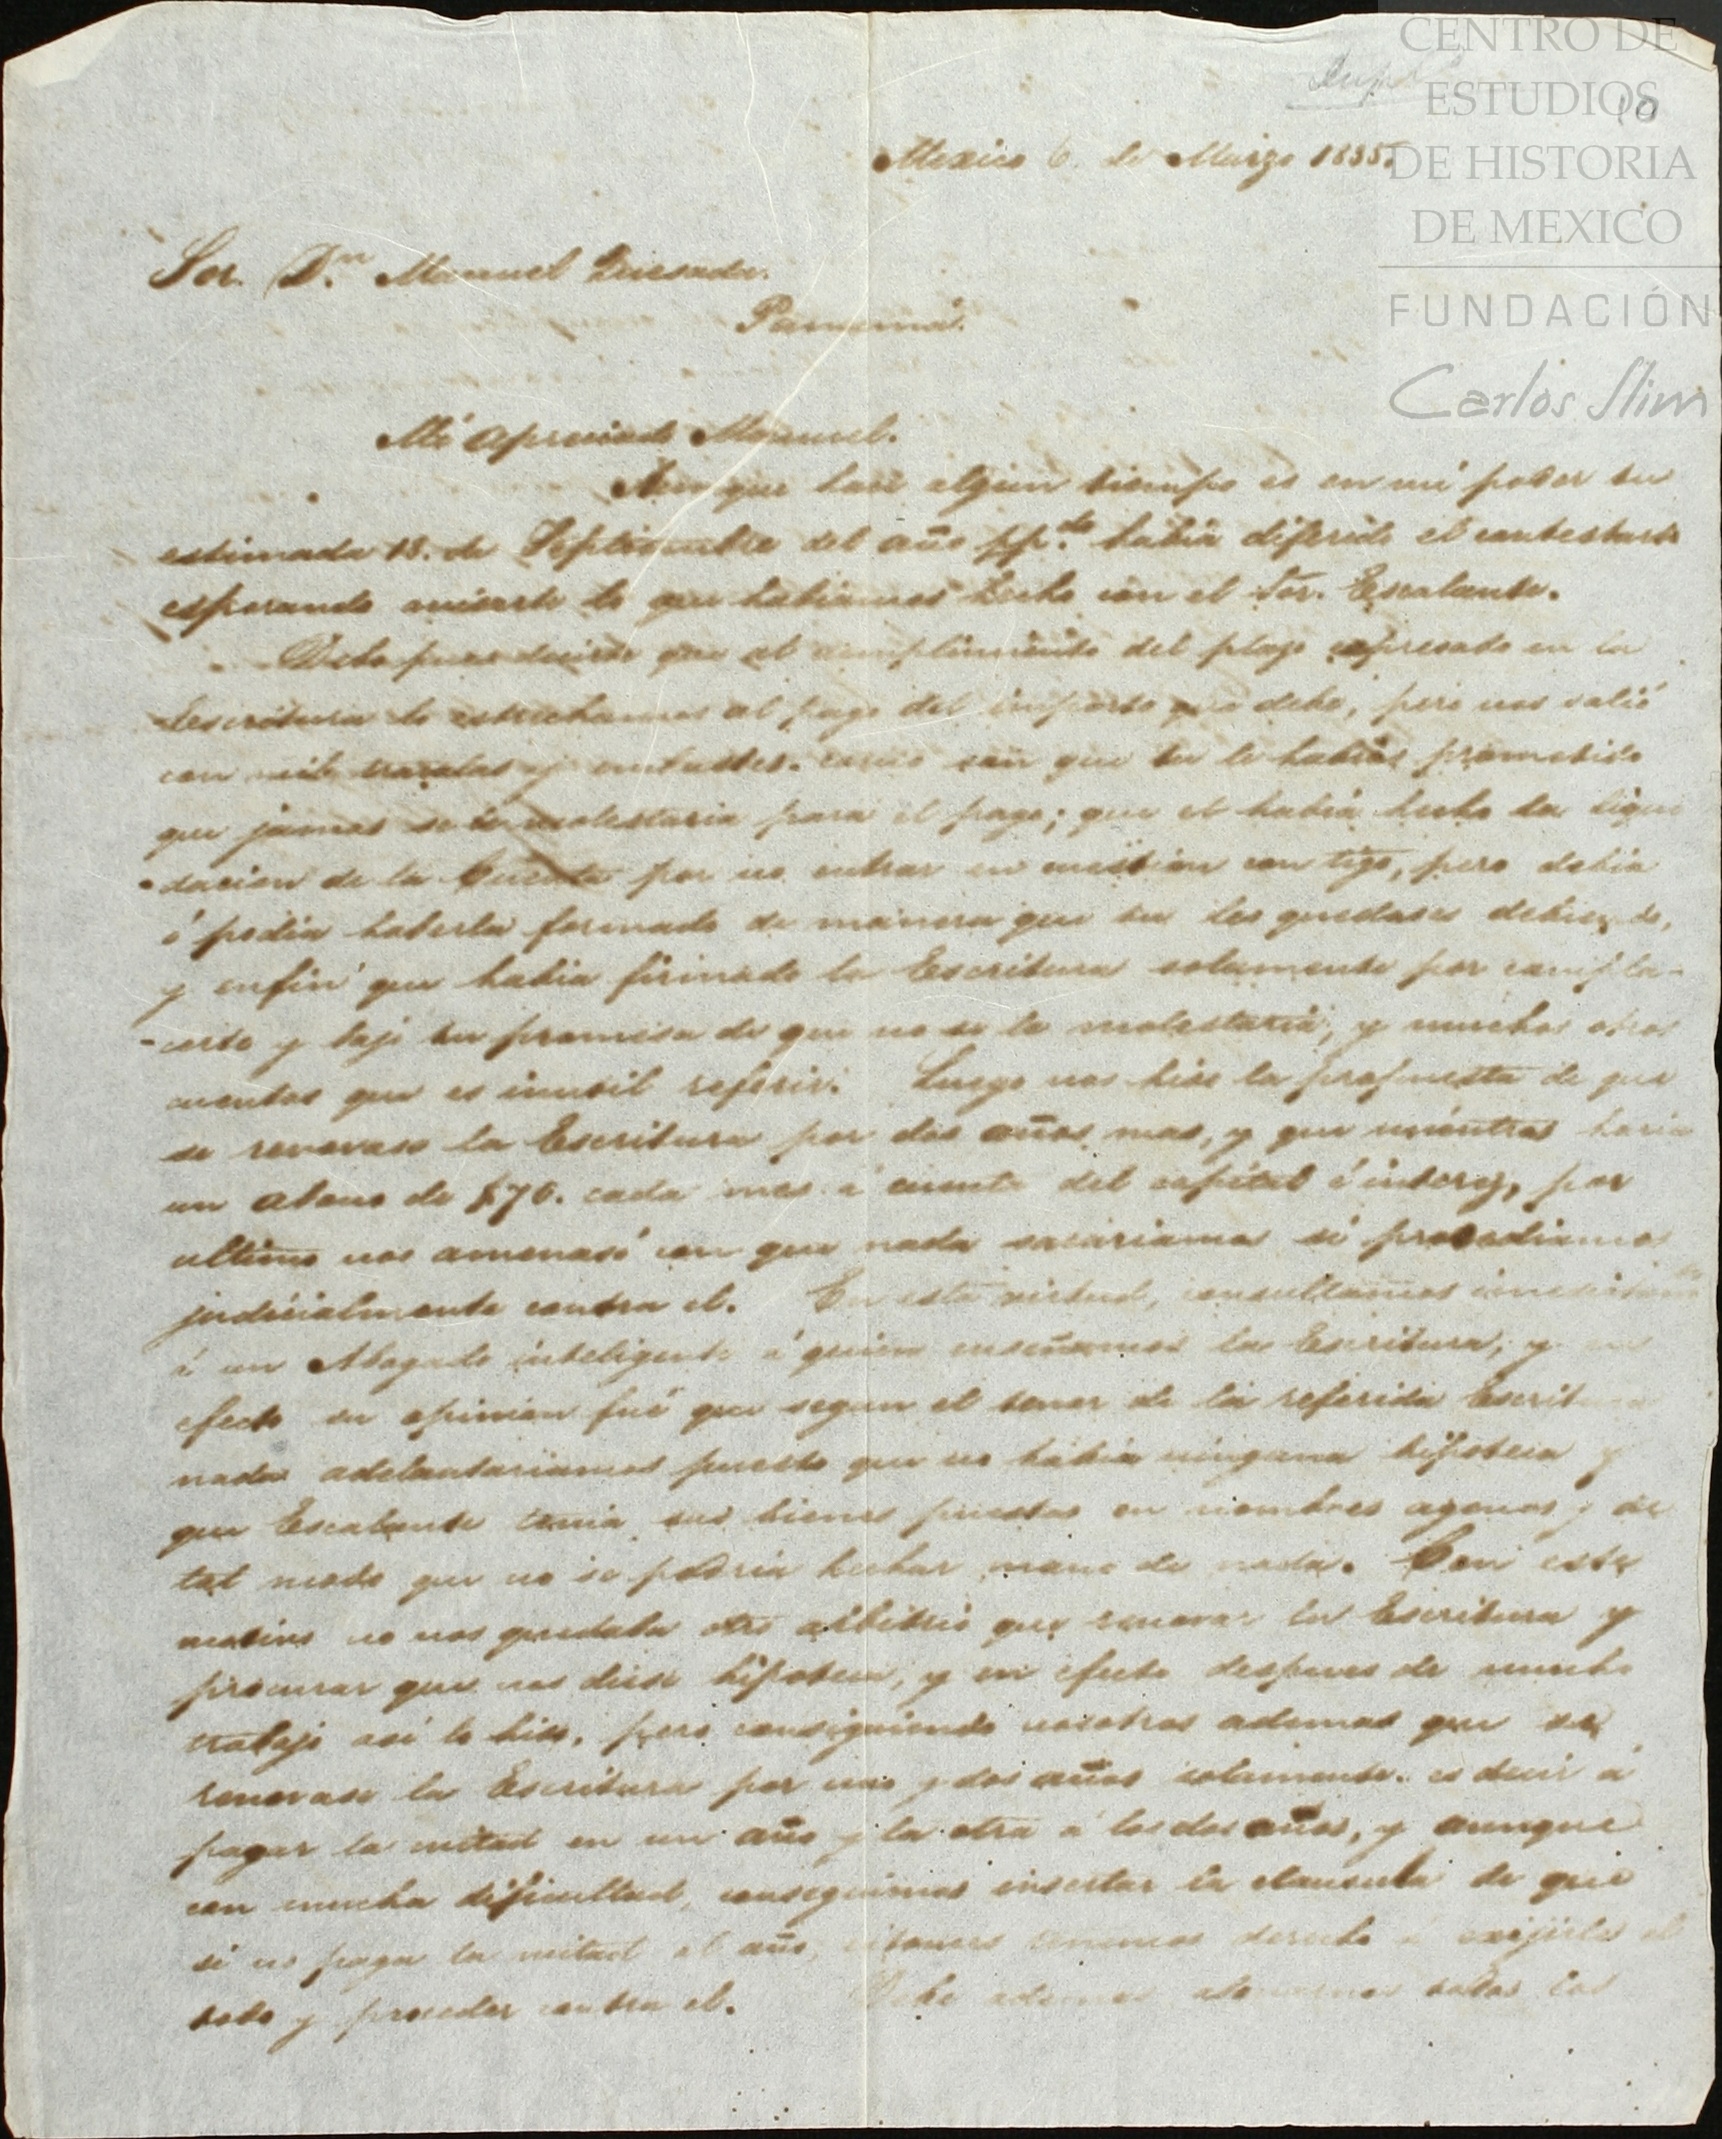 CENTRO DE
ESTUDIOS
DE HISTORIA
DE MEXICO
FUNDACIÓN
Carlos Slim
10
Mexico 6. de Marzo 1855.
Sor. Dn. Manuel Quesada.
Panamá.
Mi apreciado Manuel.
Aunque hace algun tiempo es en mi poder tu
estimada 18. de Septiembre del año pp.do habia diferido el contestarte
esperando avisarte lo que habiamos hecho con el Sor. Escalante.
Debo pues decirte que al cumplimiento del plazo expresado en la
Escritura lo estrechamos al pago del importe que debe, pero nos salió
con mil tracalas y embustes. como son que tu le habias prometido
que jamas se le molestaria para el pago; que el habia hecho la liqui
dacion de la Cuenta por no entrar en cuestion con tigo, pero debia
ó podia haberla formado de manera que tu les quedases debiendo,
y enfin que habia firmado la Escritura solamente por compla-
-certe y bajo tu promesa de que no se le molestaria, y muchos otros
cuentos que es inutil referir. Luego nos hizo la propuesta de que
se renovase la Escritura por dos años mas, y que mientras haria
un abono de $70. cada mes á cuenta del capital é interez, por
ultimo nos amenasó con que nada sacariamos si procediamos
judicialmente contra el. En esta virtud, consultamos
á un Abogado inteligente á quien enseñamos la Escritura, y en
efecto su opinion fué que segun el tenor de la referida Escritura
nada adelantariamos puesto que no habia ninguna hipoteca y
que Escalante tenia sus bienes puestos en nombres agenos y de
tal modo que no se podria hechar mano de nada. Con este
motivo no nos quedaba otro arbitrio que renovar la Escritura y
procurar que nos diese hipoteca, y en efecto despues de mucho
trabajo asi lo hizo, pero consiguiendo nosotros ademas que se
renovase la Escritura por uno y dos años solamente. es decir á
pagar la mitad en un año y la otra á los dos años, y aunque
con mucha dificultad, conseguimos insertar la clausula de que
si no paga la mitad al año, entonces tenemos derecho á exijirle el
todo y proceder contra el. Debe ademas abonarnos todos los